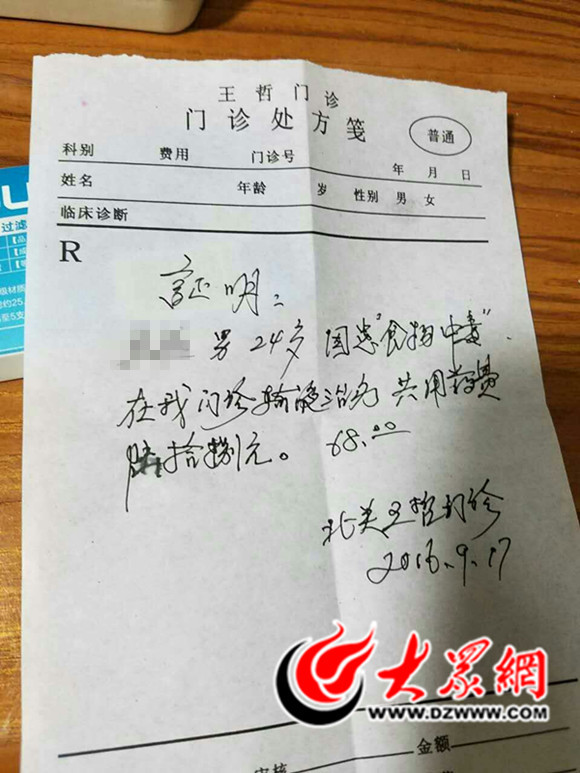 王哲门诊
门诊处方笺
普通
科别 费用 门诊号 年 月 日
姓名 年龄 岁 性别 男 女
临床诊断
R
证明：
男 24岁 因患“食物中毒”.
在我门诊输液治疗 共用药费
陆拾捌元。 68.00
北关王哲门诊
2016.9.17
过滤
大眾網
WWW.DZWWW.COM
金额